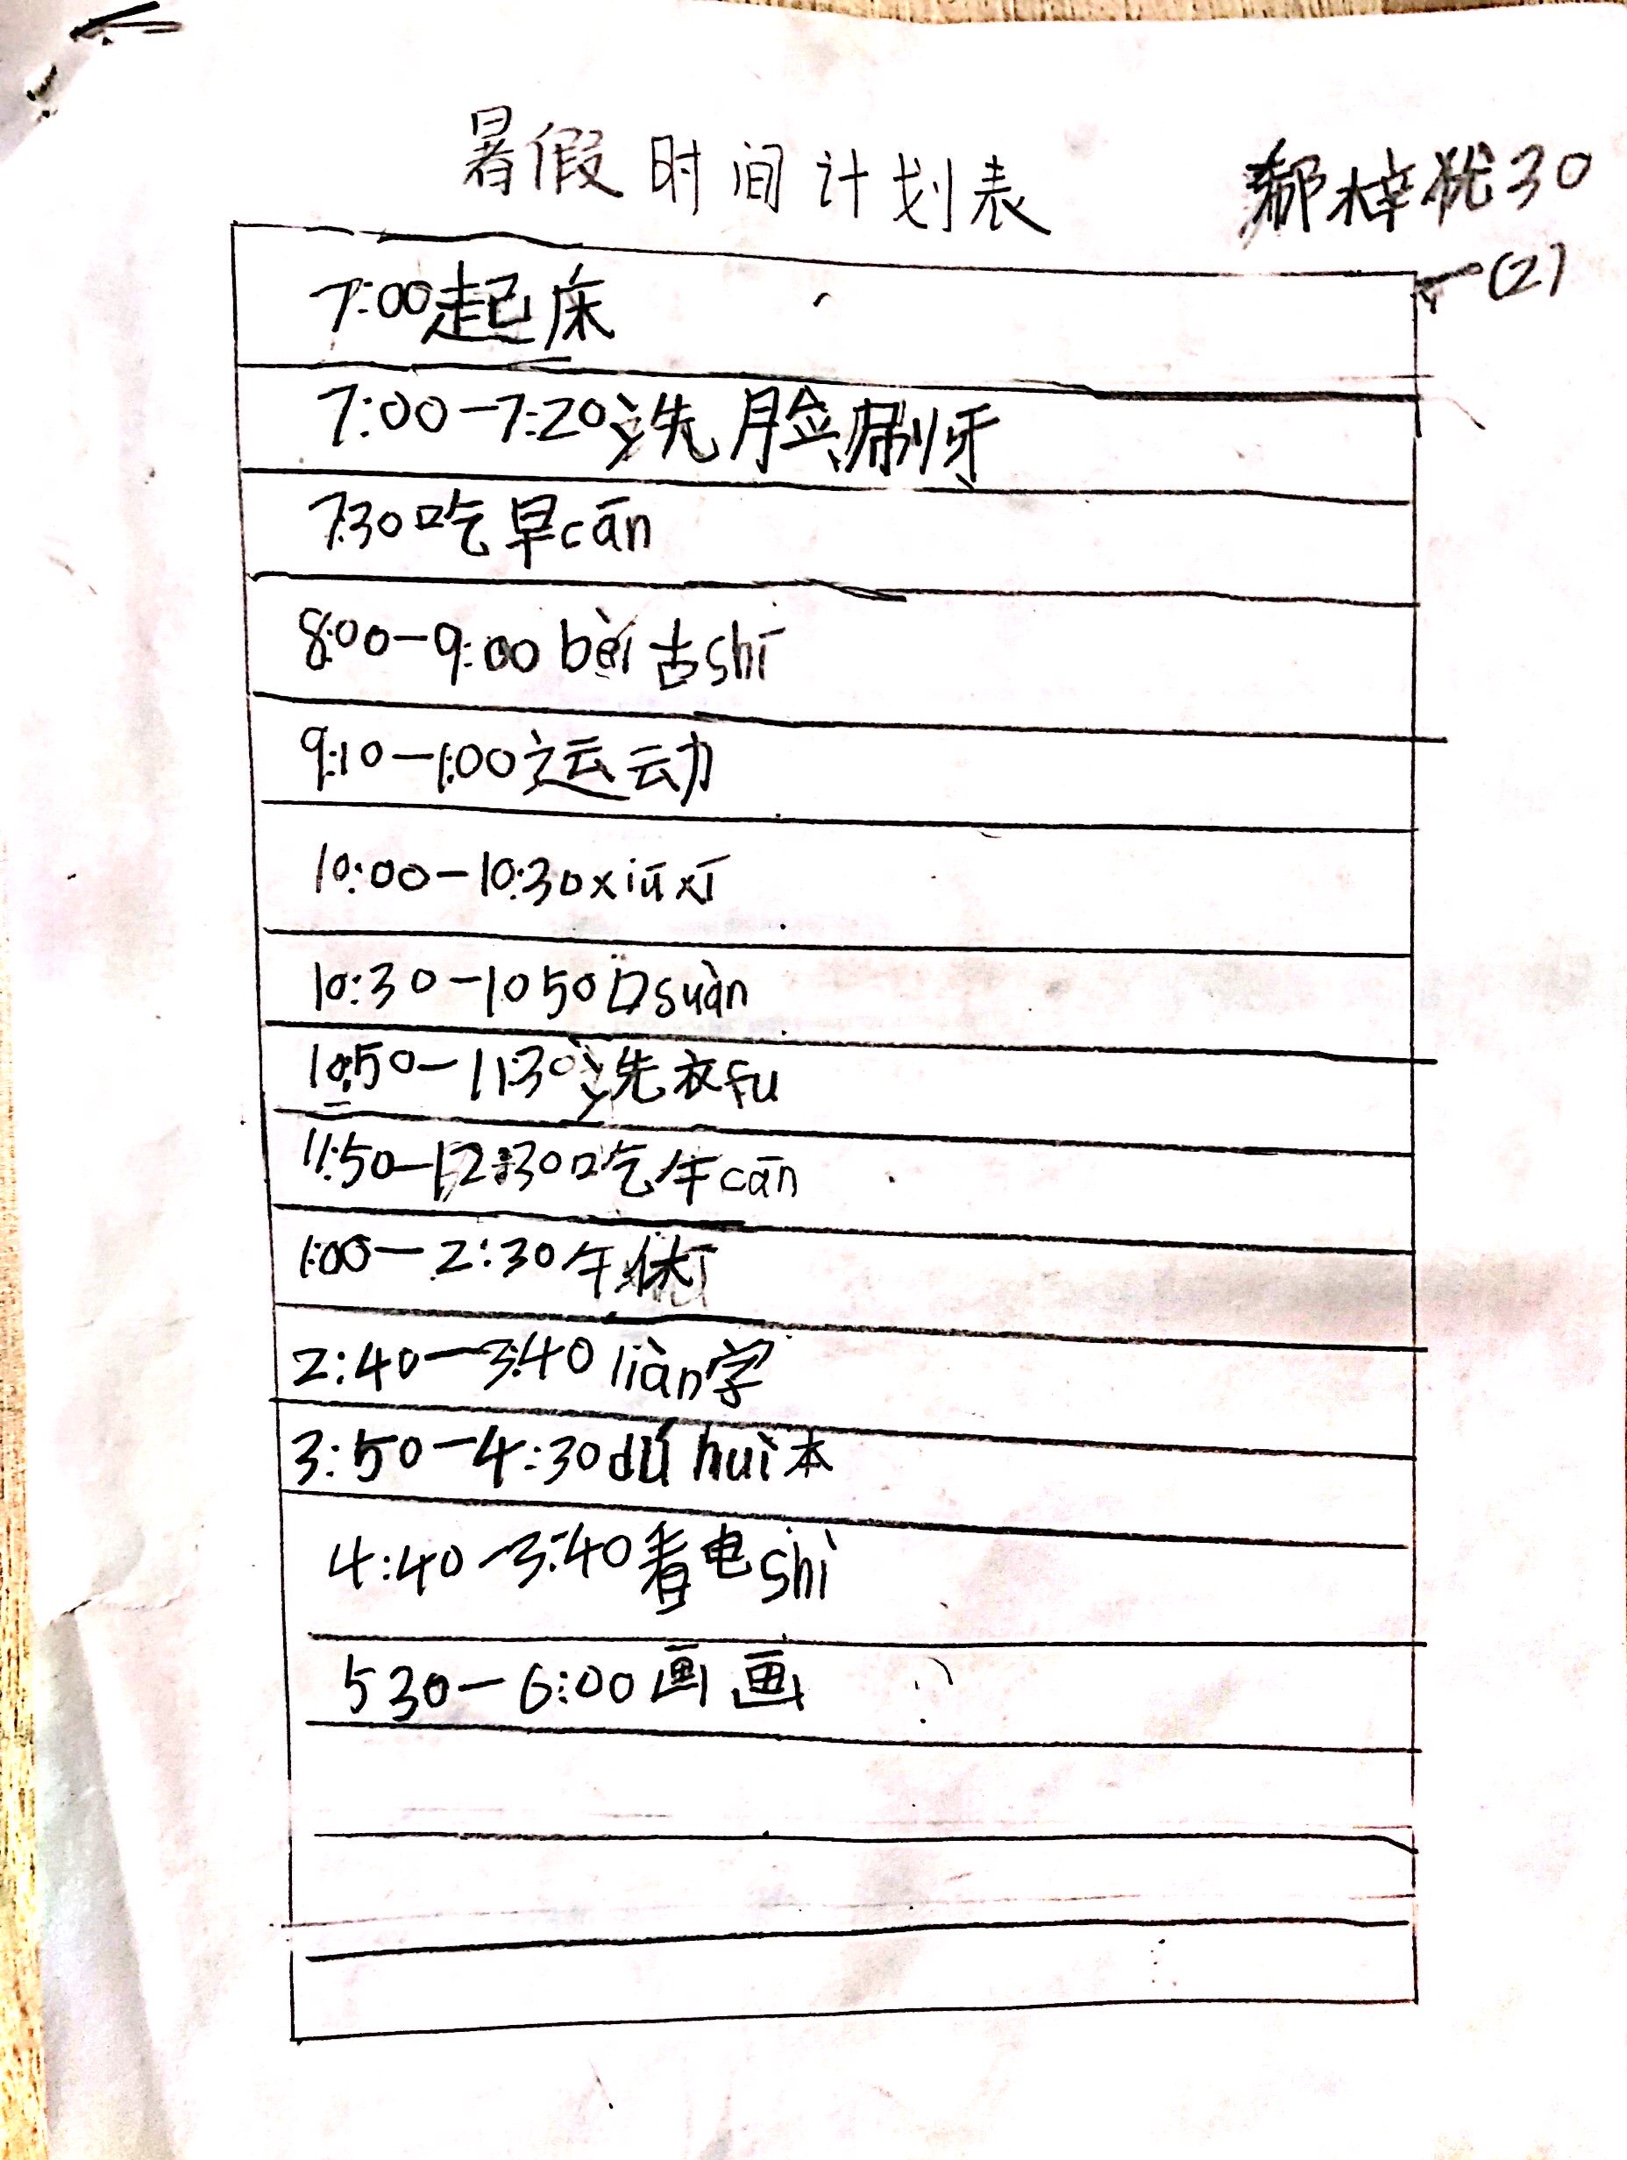 暑假时间计划表
郝梓犹30
一(2)
7:00起床
7:00-7:20洗脸刷牙
7:30吃早cān
8:00-9:00 bèi古shī
9:10-1:00运动
10:00-10:30xiūxī
10:30-1050口suàn
10:50-11:30洗衣fu
11:50-12:30吃午cān
1:00-2:30午休
2:40-3:40 liàn字
3:50-4:30dú huì本
4:40-3:40看电shì
530-6:00画画